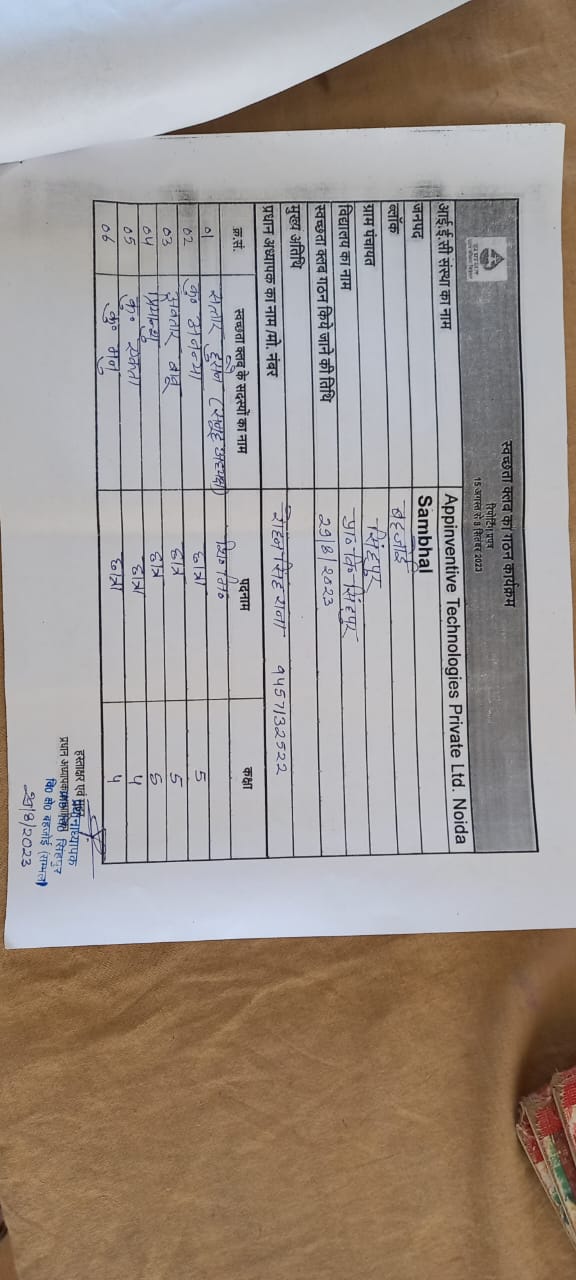 स्वच्छता क्लब का गठन कार्यक्रम
रिपोर्टिंग प्रपत्र
15 अगस्त से 8 सितंबर 2023
आई.ई.सी संस्था का नाम Appinventive Technologies Private Ltd. Noida
जनपद Sambhal
ब्लॉक बहजोई
ग्राम पंचायत सिंहपुर
विद्यालय का नाम प्रा० वि० सिंहपुर
स्वच्छता क्लब गठन किये जाने की तिथि 29/8/2023
मुख्य अतिथि
प्रधान अध्यापक का नाम /मो. नंबर सिंह राना 9457132522
क्र.सं. स्वच्छता क्लब के सदस्यों का नाम पदनाम कक्षा
01 हुसैन शि० मि०
02 कु० अनन्या छात्रा 5
03 अवतार बाबू छात्र 5
04 छात्र 5
05 कु० एकता छात्रा 4
06 कु० छात्रा 4
हस्ताक्षर एवं मुहर
प्रधानाध्यापक
प्रधान अध्यापक
सिंहपुर
वि० क्षे० बहजोई (सम्भल)
29/8/2023